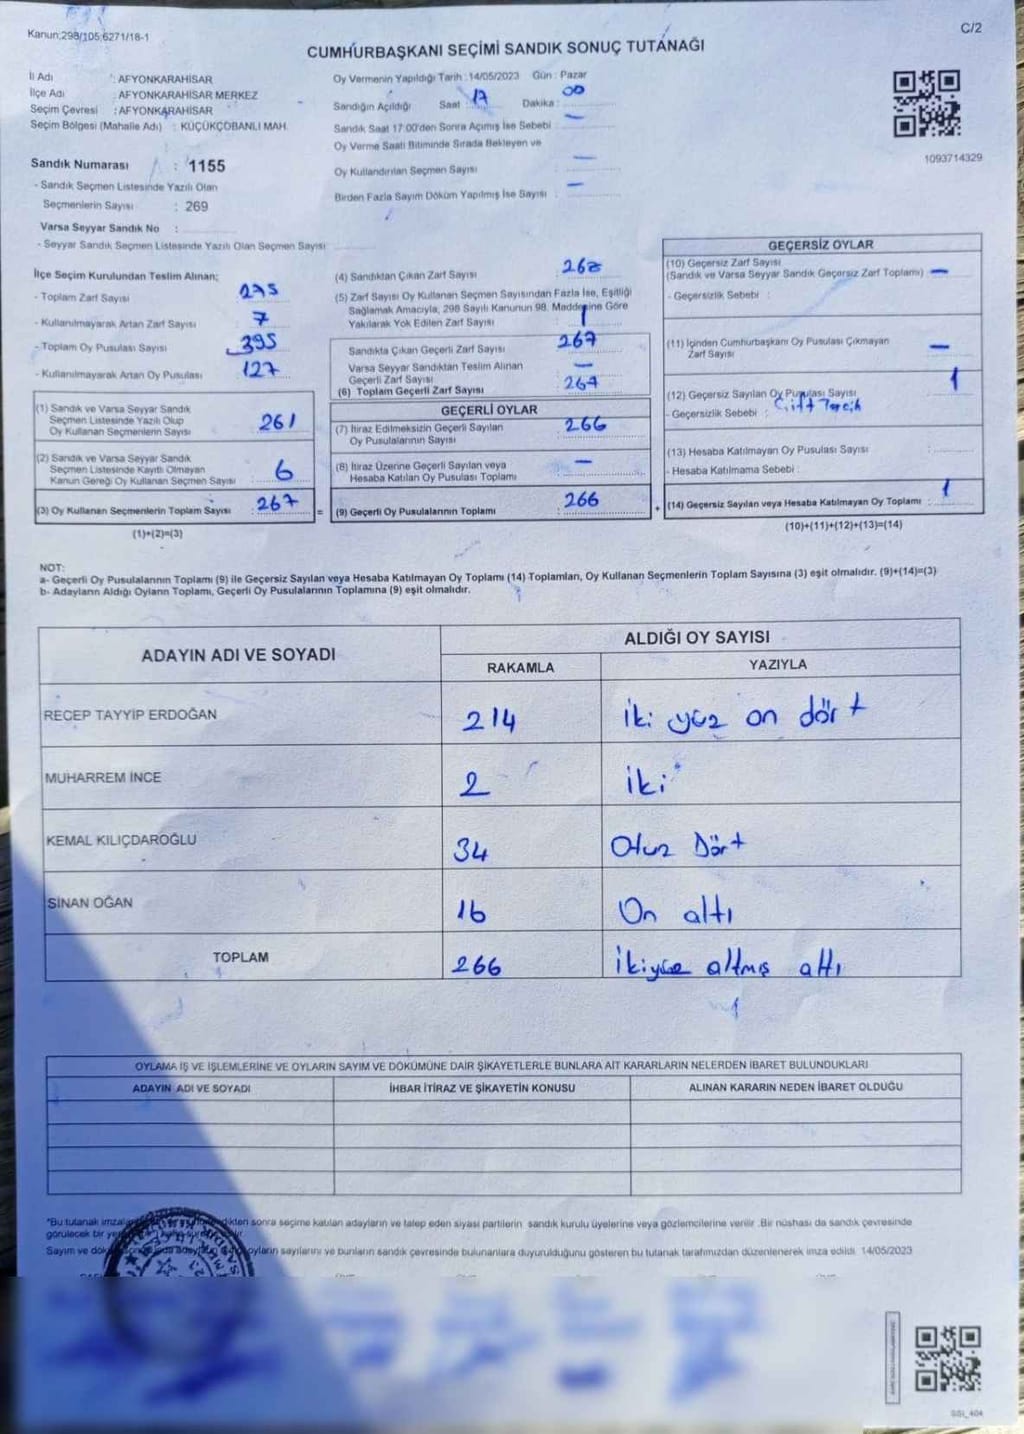 Kanun;298/105;6271/18-1
C/2
CUMHURBAŞKANI SEÇİMİ SANDIK SONUÇ TUTANAĞI
İl Adı : AFYONKARAHİSAR
İlçe Adı : AFYONKARAHİSAR MERKEZ
Seçim Çevresi : AFYONKARAHİSAR
Seçim Bölgesi (Mahalle Adı) : KÜÇÜKÇOBANLI MAH.
Sandık Numarası : 1155
- Sandık Seçmen Listesinde Yazılı Olan
Seçmenlerin Sayısı : 269
Varsa Seyyar Sandık No :
- Seyyar Sandık Seçmen Listesinde Yazılı Olan Seçmen Sayısı
Oy Vermenin Yapıldığı Tarih : 14/05/2023 Gün : Pazar
Sandığın Açıldığı Saat : 17 Dakika : 00
Sandık Saat 17:00'den Sonra Açılmış İse Sebebi : —
Oy Verme Saati Bitiminde Sırada Bekleyen ve
Oy Kullandırılan Seçmen Sayısı : —
Birden Fazla Sayım Döküm Yapılmış İse Sayısı : —
1093714329
İlçe Seçim Kurulundan Teslim Alınan;
- Toplam Zarf Sayısı 275
- Kullanılmayarak Artan Zarf Sayısı 7
- Toplam Oy Pusulası Sayısı 395
- Kullanılmayarak Artan Oy Pusulası 127
(1) Sandık ve Varsa Seyyar Sandık
Seçmen Listesinde Yazılı Olup
Oy Kullanan Seçmenlerin Sayısı 261
(2) Sandık ve Varsa Seyyar Sandık
Seçmen Listesinde Kayıtlı Olmayan
Kanun Gereği Oy Kullanan Seçmen Sayısı 6
(3) Oy Kullanan Seçmenlerin Toplam Sayısı 267
(1)+(2)=(3)
(4) Sandıktan Çıkan Zarf Sayısı 268
(5) Zarf Sayısı Oy Kullanan Seçmen Sayısından Fazla İse, Eşitliği
Sağlamak Amacıyla, 298 Sayılı Kanunun 98. Maddesine Göre
Yakılarak Yok Edilen Zarf Sayısı 1
Sandıkta Çıkan Geçerli Zarf Sayısı 267
Varsa Seyyar Sandıktan Teslim Alınan
Geçerli Zarf Sayısı —
(6) Toplam Geçerli Zarf Sayısı 267
GEÇERLİ OYLAR
(7) İtiraz Edilmeksizin Geçerli Sayılan
Oy Pusulalarının Sayısı 266
(8) İtiraz Üzerine Geçerli Sayılan veya
Hesaba Katılan Oy Pusulası Toplamı —
= (9) Geçerli Oy Pusulalarının Toplamı 266
GEÇERSİZ OYLAR
(10) Geçersiz Zarf Sayısı
(Sandık ve Varsa Seyyar Sandık Geçersiz Zarf Toplamı) —
- Geçersizlik Sebebi :
(11) İçinden Cumhurbaşkanı Oy Pusulası Çıkmayan
Zarf Sayısı —
(12) Geçersiz Sayılan Oy Pusulası Sayısı 1
- Geçersizlik Sebebi : Çift Tercih
(13) Hesaba Katılmayan Oy Pusulası Sayısı :
- Hesaba Katılmama Sebebi :
+ (14) Geçersiz Sayılan veya Hesaba Katılmayan Oy Toplamı : 1
(10)+(11)+(12)+(13)=(14)
NOT:
a- Geçerli Oy Pusulalarının Toplamı (9) ile Geçersiz Sayılan veya Hesaba Katılmayan Oy Toplamı (14) Toplamları, Oy Kullanan Seçmenlerin Toplam Sayısına (3) eşit olmalıdır. (9)+(14)=(3)
b- Adayların Aldığı Oyların Toplamı, Geçerli Oy Pusulalarının Toplamına (9) eşit olmalıdır.
ADAYIN ADI VE SOYADI
ALDIĞI OY SAYISI
RAKAMLA YAZIYLA
RECEP TAYYİP ERDOĞAN 214 iki yüz on dört
MUHARREM İNCE 2 iki
KEMAL KILIÇDAROĞLU 34 Otuz Dört
SİNAN OĞAN 16 On altı
TOPLAM 266 İkiyüz altmış altı
OYLAMA İŞ VE İŞLEMLERİNE VE OYLARIN SAYIM VE DÖKÜMÜNE DAİR ŞİKAYETLERLE BUNLARA AİT KARARLARIN NELERDEN İBARET BULUNDUKLARI
ADAYIN ADI VE SOYADI İHBAR İTİRAZ VE ŞİKAYETİN KONUSU ALINAN KARARIN NEDEN İBARET OLDUĞU
*Bu tutanak sonra seçime katılan adayların ve talep eden siyasi partilerin sandık kurulu üyelerine veya gözlemcilerine verilir .Bir nüshası da sandık çevresinde
görülecek bir
Sayım ve oyların sayılarını ve bunların sandık çevresinde bulunanlara duyurulduğunu gösteren bu tutanak tarafımızdan düzenlenerek imza edildi. 14/05/2023
SSİ_404